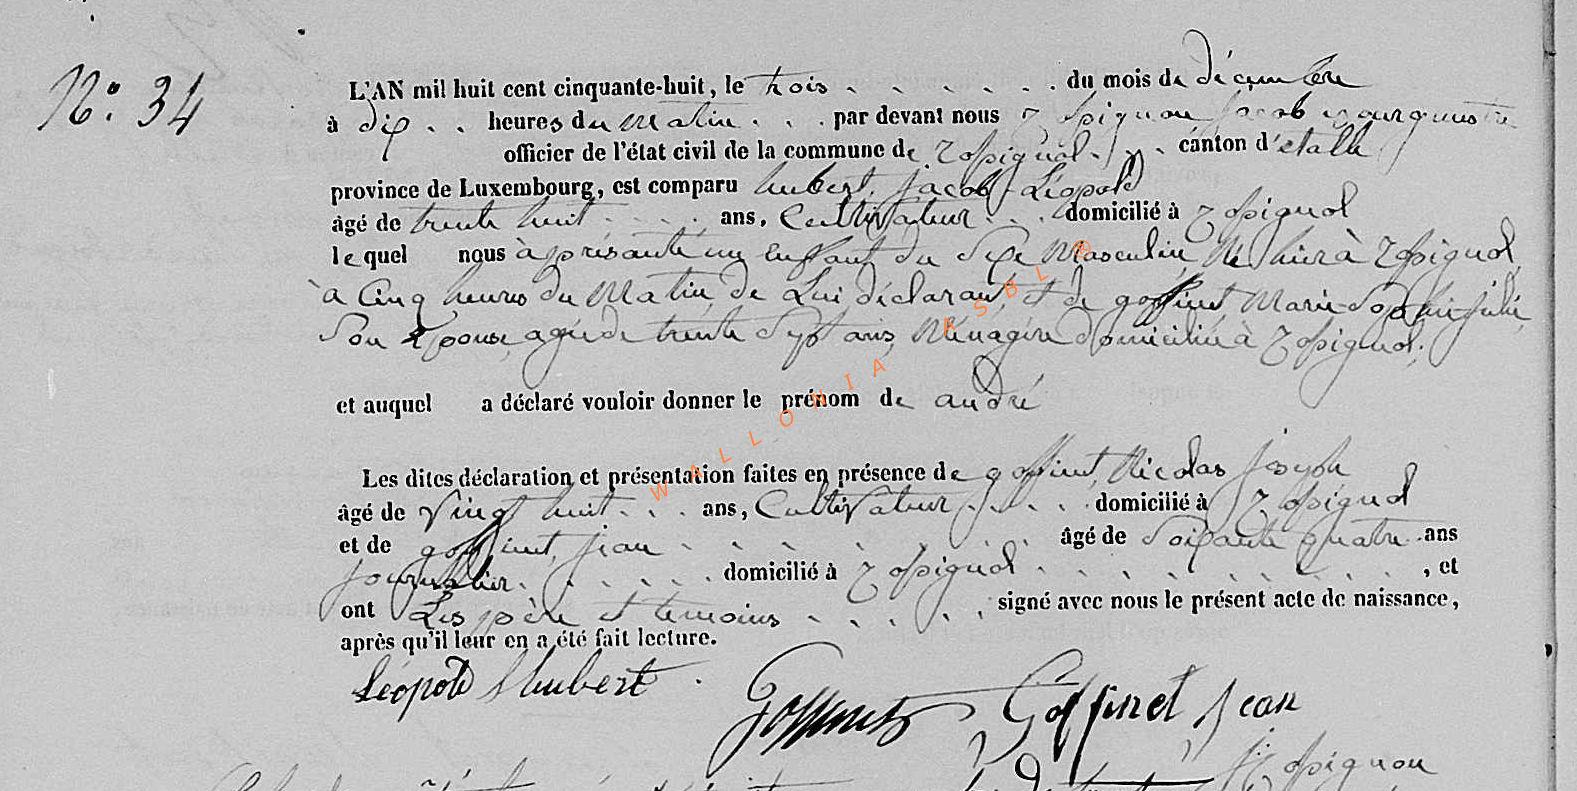 N° 34
L'AN mil huit cent cinquante-huit, le trois . . . . . . du mois de décembre
à dix . . heures du matin . . . par devant nous Rossignon jacob bourguestre
officier de l'état civil de la commune de Rossignol . . . canton d'étalle
province de Luxembourg, est comparu hubert, jacob Léopold
âgé de trente huit . . . . ans, Cultivateur . . . domicilié à Rossignol
lequel nous à présanté un Enffant du Sexe Masculin, Né hier à Rossignol,
à Cinq heures du Matin, de Lui déclarant, et de goffinet Marie Sophie julie,
Son Epouse, agée de trente Sept ans, Ménagère domiciliée à Rossignol,
et auquel a déclaré vouloir donner le prénom de andré
Les dites déclaration et présentation faites en présence de goffinet, Nicolas joseph
âgé de Vingt huit . . . ans, Cultivateur . . . . domicilié à Rossignol
et de goffinet, jean . . . . . . . . âgé de Soixante quatre ans
journalier . . . . . . domicilié à Rossignol . . . . . . . . , et
ont Les père et temoins . . . . . . signé avec nous le présent acte de naissance,
après qu'il leur en a été fait lecture.
Léopold Hubert . Goffinet Goffinet Jean
Rossignon
WALLONIA ASBL ©